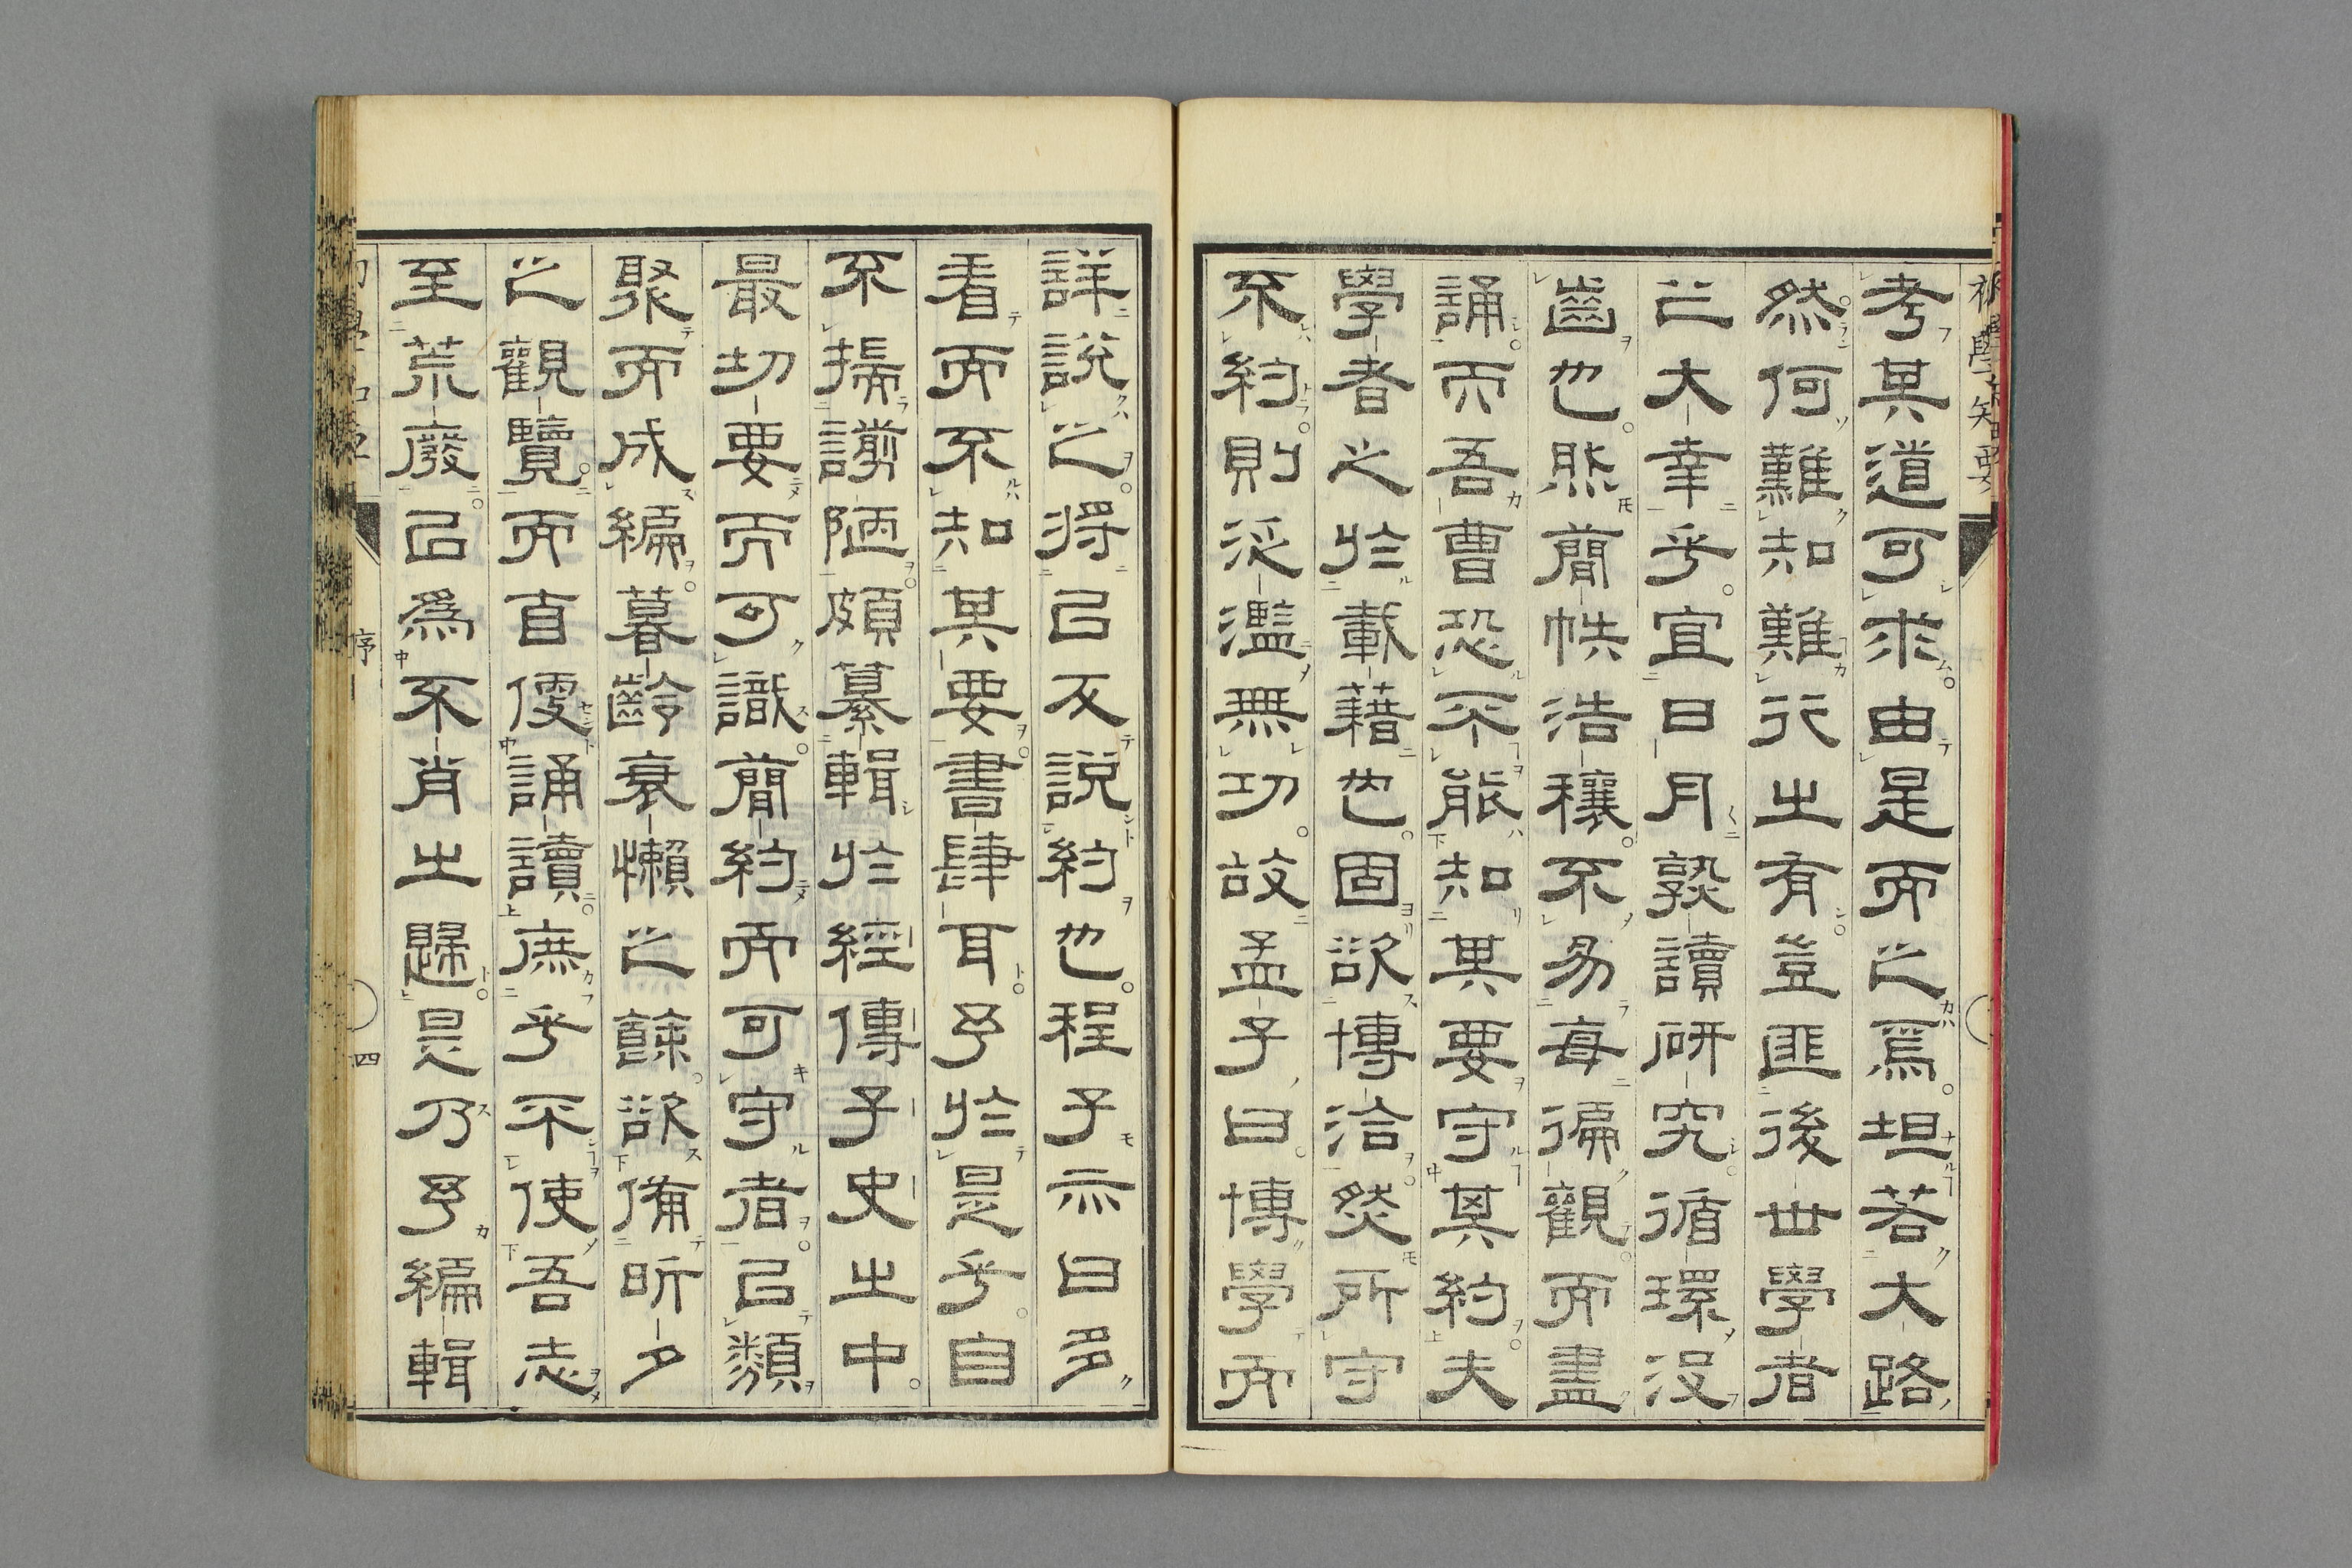 初學知要
考其道可求由是而之焉坦若大路
然何難知難行之有豈匪後世學者
之大幸乎宜日月熟讀研究循環没
齒也然簡帙浩穰不易每徧觀而盡
誦而吾曹恐不能知其要守其約夫
學者之於載藉也固欲博洽然所守
不約則泛濫無功故孟子曰博學而
詳說之將以反說約也程子亦曰多
看而不知其要書肆耳予於是乎自
不揣謭陋頗纂輯於經傳子史之中
最切要而可識簡約而可守者以類
聚而成編暮齡衰懶之餘欲備昕夕
之觀覽而直便誦讀庶乎不使吾志
至荒廢以爲不肖之歸是乃予編輯
序
四